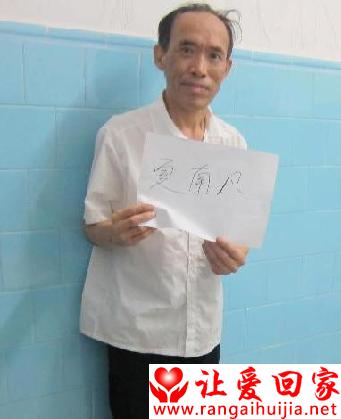 夏南凡
让爱回家
www.rangaihuijia.net